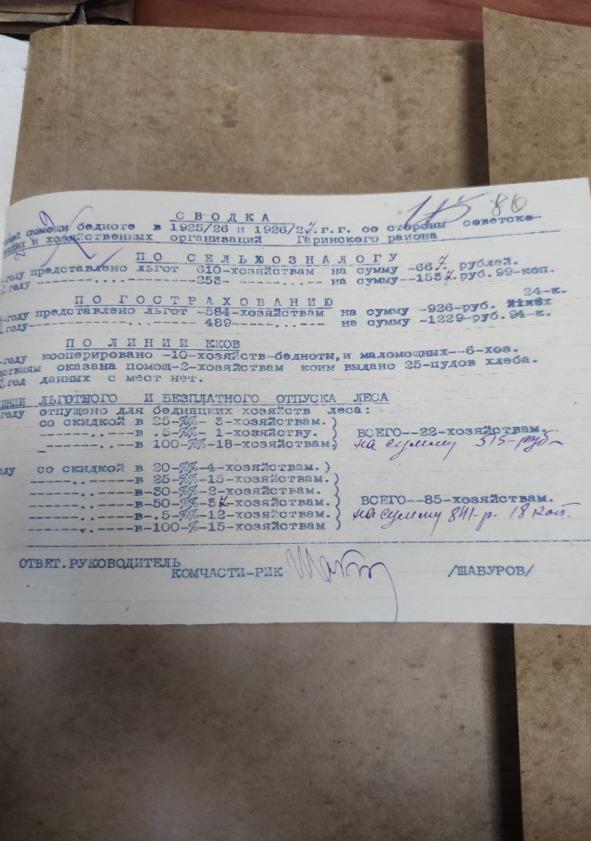 115 80
СВОДКА
помощи бедноте в 1925/26 и 1926/27.г.г. со стороны советске-
и хозяйственных организаций Гаринского района
ПО СЕЛЬХОЗНАЛОГУ
году представлено льгот 610-хозяйствам на сумму -667 рублей.
году -------------253- -...---...-- на сумму -1537 руб. 99-коп.
24-к.
ПО ГОСТРАХОВАНИЮ
-году представлено льгот -584-хозяйствам на сумму -926-руб.
году------------- 489-----...--- на сумму -1229-руб.94-к.
ПО ЛИНИИ ККОВ
-году кооперировано -10-хозяйств-бедноты,и маломощных--6-хоз.
оказана помощ-2-хозяйствам коим выдано 25-пудов хлеба.
год данных с мест нет.
ЛИНИИ ЛЬГОТНОГО И БЕЗПЛАТНОГО ОТПУСКА ЛЕСА
году отпущено для бедняцких хозяйств леса:
со скидкой в 25-%%- 3-хозяйствам.)
------..--в .5-%%- 1-хозяйству. ) ВСЕГО--22-хозяйствам.
------..--в 100-%%-18-хозяйствам) на сумму 315-руб-
ду со скидкой в 20-%%-4-хозяйствам.)
-----..-----в-25-%%-15-хозяйствам.)
-----..-----в-30-%%-2-хозяйствам.)
-----..-----в-50-%%-37-хозяйствам.) ВСЕГО--85-хозяйствам.
-----..-----в.5-%%-12-хозяйствам.) на сумму 841-р. 18 коп.
-----..-----в-100-%%-15-хозяйствам)
ОТВЕТ.РУКОВОДИТЕЛЬ
КОМЧАСТИ-РИК /ШАВУРОВ/